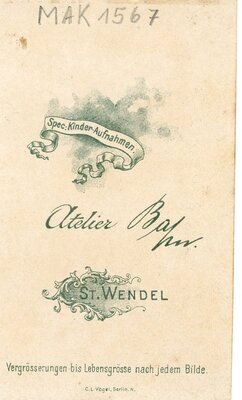 MAK 1567
Spec: Kinder-Aufnahmen.
Atelier
ST. WENDEL
Vergrösserungen bis Lebensgrösse nach jedem Bilde.
C. L. Vogel, Berlin, N.